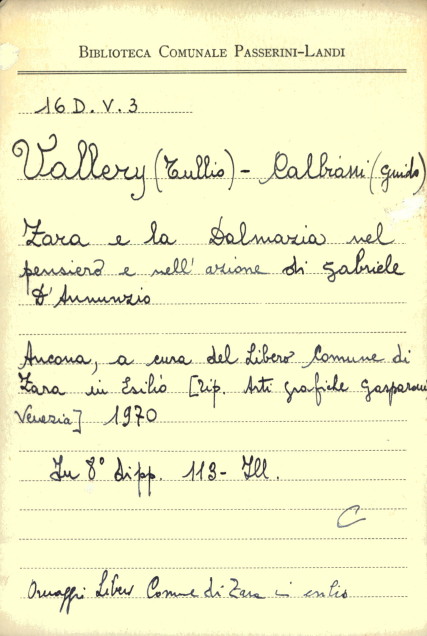 BIBLIOTECA COMUNALE PASSERINI-LANDI
16 D. V. 3
Vallery (Tullio) - Calbiani (Guido)
Zara e la Dalmazia nel
pensiero e nell'azione di Gabriele
D'Annunzio
Ancona, a cura del Libero Comune di
Zara in Esilio [Tip. Arti grafiche Gasparoni
Venezia] 1970
In 8° di pp. 113 - Ill.
C
Omaggio Libero Comune di Zara in esilio